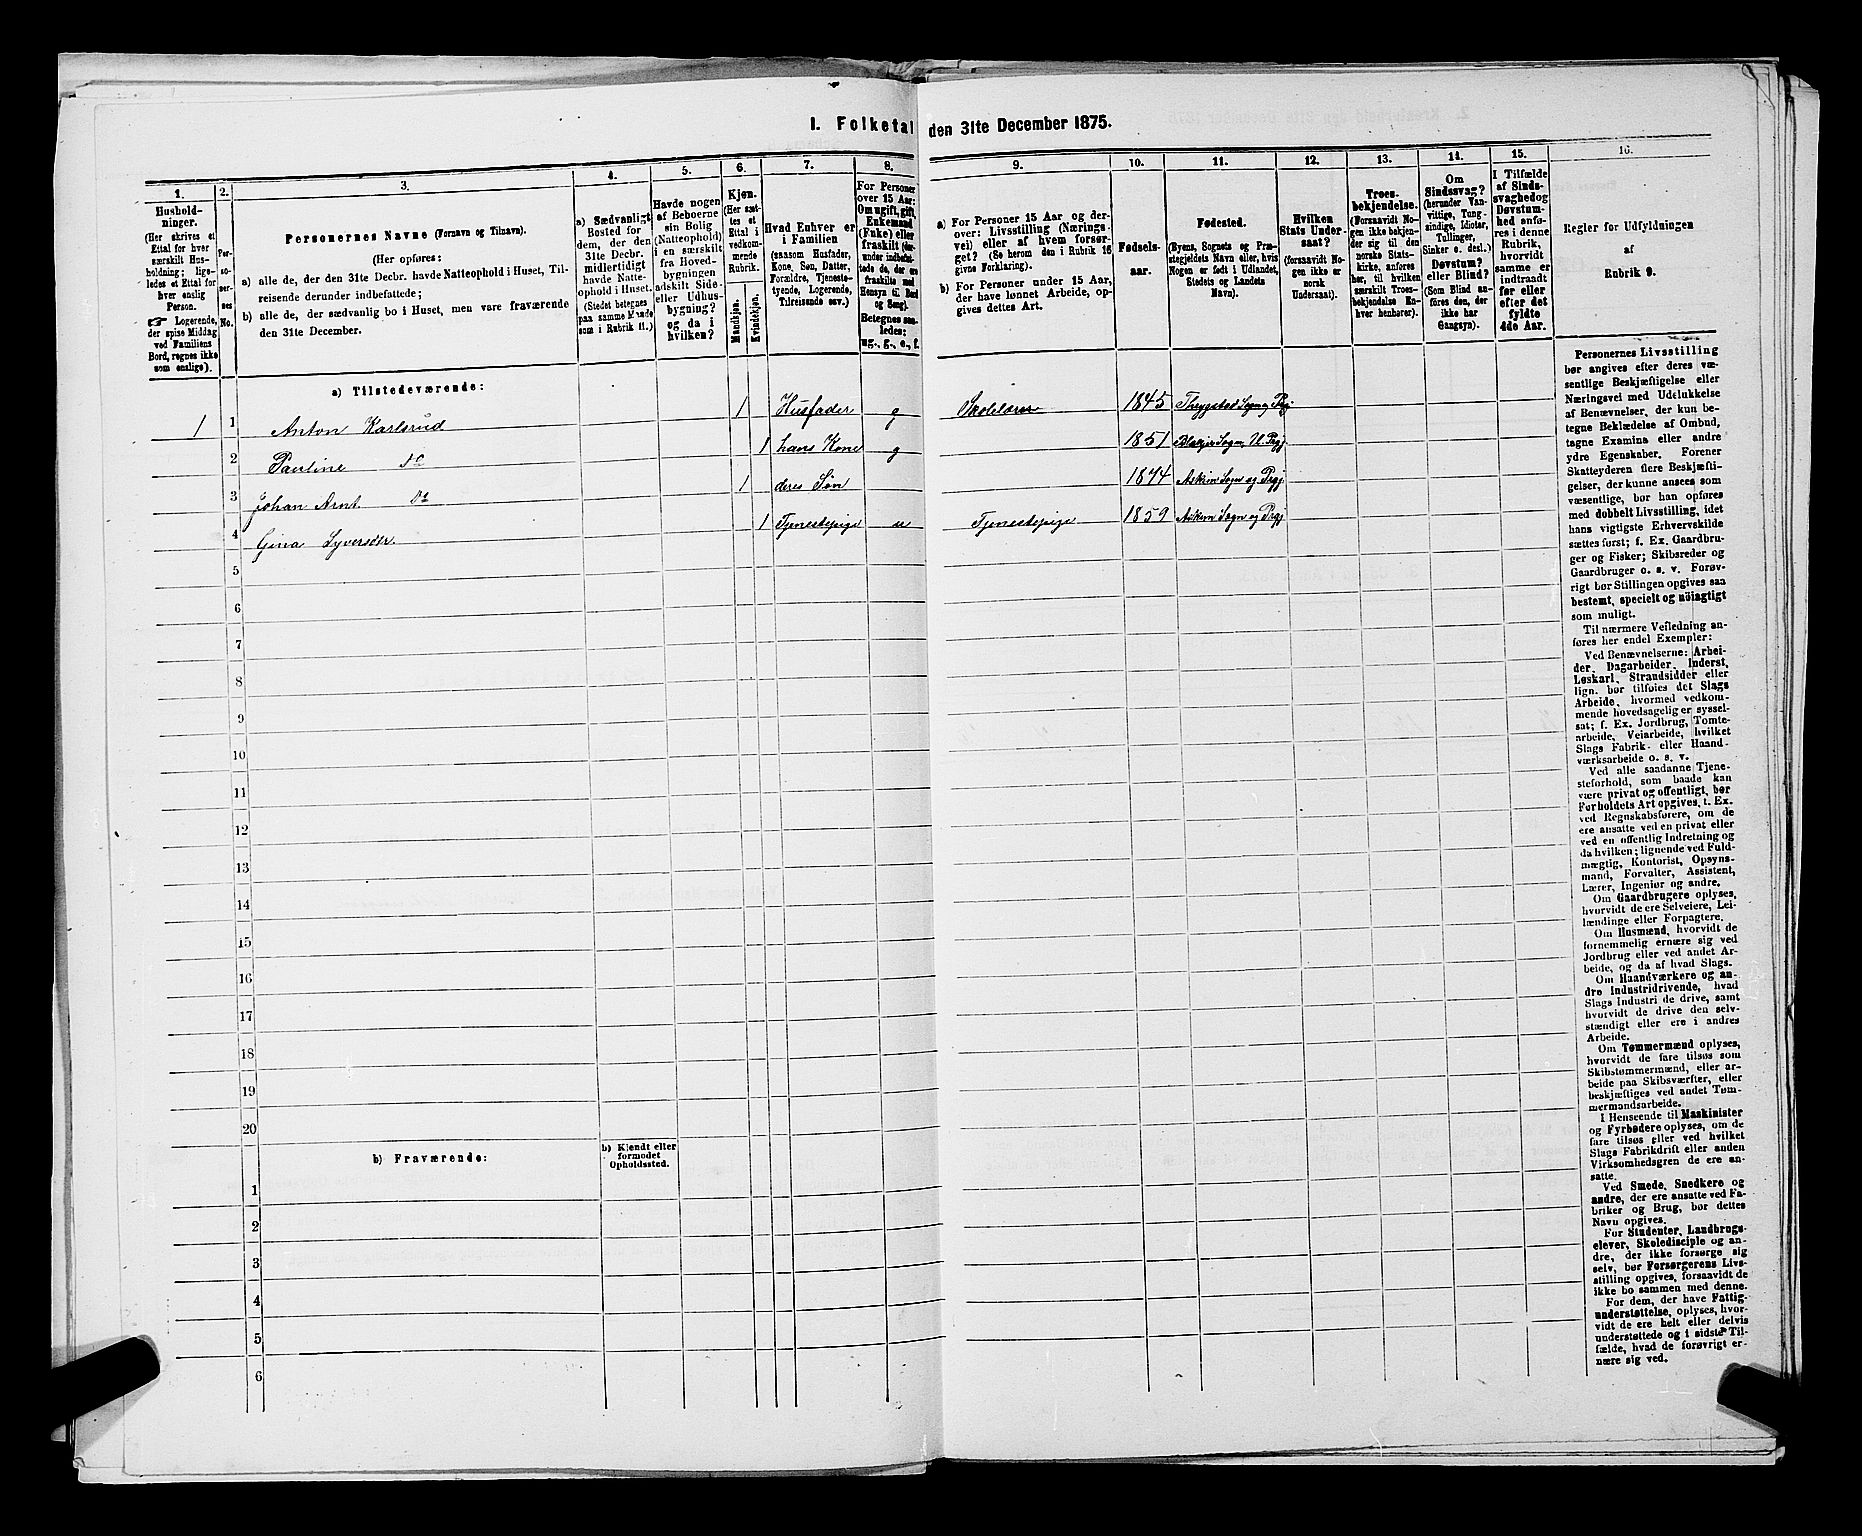 I. Folketal den 31te December 1875.
1.
2.
3.
4.
5.
6.
7.
8.
9.
10.
11.
12.
13.
14.
15.
16.
Hushold-
ninger.
(Her skrives et
Ettal for hver
særskilt Hus-
holdning; lige-
ledes et Ettal for
hver enslig
Person.
☞ Logerende,
der spise Middag
ved Familiens
Bord, regnes ikke
som enslige).
Per-
so-
ner-
nes
No.
Personernes Navne (Fornavn og Tilnavn).
(Her opføres:
a) alle de, der den 31te Decbr. havde Natteophold i Huset, Til-
reisende derunder indbefattede;
b) alle de, der sædvanlig bo i Huset, men vare fraværende
den 31te December.
a) Sædvanligt
Bosted for
dem, der den
31te Decbr.
midlertidigt
havde Natte-
ophold i Huset.
(Stedet betegnes
paa samme Maade
som i Rubrik 11.)
Havde nogen
af Beboerne
sin Bolig
(Natteophold)
i en særskilt
fra Hoved-
bygningen
adskilt Side-
eller Udhus-
bygning?
og da i
hvilken?
Kjøn.
(Her sæt-
tes et
Ettal i
vedkom-
mende
Rubrik.
Mandkjøn.
Kvindekjøn.
Hvad Enhver er
i Familien
(saasom Husfader,
Kone, Søn, Datter,
Forældre, Tjeneste-
tyende, Logerende,
Tilreisende osv.)
For Personer
over 15 Aar:
Om ugift, gift,
Enkemand
(Enke) eller
fraskilt (der-
under indbefat-
tede de, der ere
fraskilte med
Hensyn til Bord
og Seng).
Betegnes saa-
ledes:
ug., g., e., f.
a) For Personer 15 Aar og der-
over: Livsstilling (Nærings-
vei) eller af hvem forsør-
get. (Se herom den i Rubrik 16
givne Forklaring).
b) For Personer under 15 Aar,
der have lønnet Arbeide, op-
gives dettes Art.
Fødsels-
aar.
Fødested.
(Byens, Sognets og Præ-
stegjeldets Navn eller, hvis
Nogen er født i Udlandet,
Stedets og Landets
Navn).
Hvilken
Stats Under-
saat?
(forsaavidt No-
gen ikke er
norsk
Undersaat).
Troes-
bekjendelse.
(Forsaavidt No-
gen ikke bekjen-
der sig til den
norske Stats-
kirke, anføres
her, til hvilken
særskilt Troes-
bekjendelse En-
hver henhører).
Om
Sindssvag?
(herunder Van-
vittige, Tung-
sindige, Idioter,
Tullinger,
Sinker o. desl.)
Døvstum?
eller Blind?
(Som Blind an-
føres den, der
ikke har
Gangsyn).
I Tilfælde
af Sinds-
svaghed og
Døvstum-
hed anfø-
res i denne
Rubrik,
hvorvidt
samme er
indtraadt
før eller
efter det
fyldte
4de Aar.
Regler for Udfyldningen
af
Rubrik 9.
a) Tilstedeværende:
1 1 Anton Karlsrud 1 Husfader g Skolelærer 1845 Thrygstad Sogn og Prgj
2 Pauline do 1 hans Kone g 1851 Sogn, Prgj
3 Johan Arnt. Do 1 deres Søn 1874 Askim Sogn og Prgj.
4 Gina Syversdtr. 1 Tjenestepige u Tjenestepige 1859 Askim Sogn og Prgj
5
6
7
8
9
10
11
12
13
14
15
16
17
18
19
20
b) Fraværende:
b) Kjendt eller
formodet
Opholdssted.
1
2
3
4
5
6
Personernes Livsstilling
bør angives efter deres væ-
sentlige Beskjæftigelse eller
Næringsvei med Udelukkelse
af Benævnelser, der kun be-
tegne Beklædelse af Ombud,
tagne Examina eller andre
ydre Egenskaber. Forener
Skatteyderen flere Beskjæfti-
gelser, der kunne ansees som
væsentlige, bør han opføres
med dobbelt Livsstilling, idet
hans vigtigste Erhvervskilde
sættes først; f. Ex. Gaardbru-
ger og Fisker; Skibsreder og
Gaardbruger o. s. v. Forøv-
rigt bør Stillingen opgives saa
bestemt, specielt og nøiagtigt
som muligt.
Til nærmere Veiledning an-
føres her endel Exempler:
Ved Benævnelserne: Arbei-
der, Dagarbeider, Inderst,
Løskarl, Strandsidder eller
lign. bør tilføies det Slags
Arbeide, hvormed vedkom-
mende hovedsagelig er syssel-
sat; f. Ex. Jordbrug, Tomte-
arbeide, Veiarbeide, hvilket
Slags Fabrik- eller Haand-
værksarbeide o. s. v.
Ved alle saadanne Tjene-
steforhold, som baade kan
være privat og offentligt, bør
Forholdets Art opgives, f. Ex.
ved Regnskabsførere, om de
ere ansatte ved en privat eller
ved en offentlig Indretning og
da hvilken; lignende ved Fuld-
mægtig, Kontorist, Opsyns-
mand, Forvalter, Assistent,
Lærer, Ingeniør og andre.
Om Gaardbrugere oplyses,
hvorvidt de ere Selveiere, Lei-
lændinge eller Forpagtere.
Om Husmænd, hvorvidt de
fornemmelig ernære sig ved
Jordbrug eller ved andet Ar-
beide, og da af hvad Slags.
Om Haandværkere og an-
dre Industridrivende, hvad
Slags Industri de drive, samt
hvorvidt de drive den selv-
stændigt eller ere i andres
Arbeide.
Om Tømmermænd oplyses,
hvorvidt de fare tilsøs som
Skibstømmermænd, eller ar-
beide paa Skibsværfter, eller
beskjæftiges ved andet Tøm-
mermandsarbeide.
I Henseende til Maskinister
og Fyrbødere oplyses, om de
fare tilsøs eller ved hvilket
Slags Fabrikdrift eller anden
Virksomhedsgren de ere an-
satte.
Ved Smede, Snedkere og
andre, der ere ansatte ved Fa-
briker og Brug, bør dettes
Navn opgives.
For Studenter, Landbrugs-
elever, Skoledisciple og an-
dre, der ikke forsørge sig
selv, bør Forsørgerens Livs-
stilling opgives, forsaavidt de
ikke bo sammen med denne.
For dem, der have Fattig-
understøttelse, oplyses, hvor-
vidt de ere helt eller delvis
understøttede og i sidste Til-
fælde, hvad de forøvrigt er-
nære sig ved.